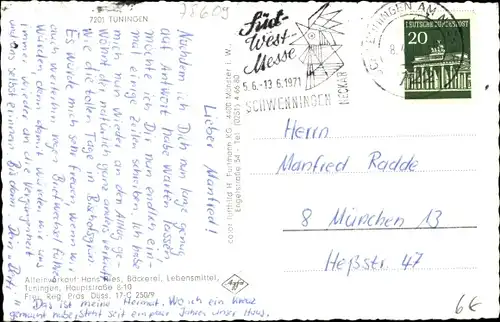 7201 TUNINGEN
78609
Lieber Manfred!
Nachdem ich Dich nun lange genug
auf Antwort habe warten lassen
möchte ich Dir nun endlich ein-
mal einige Zeilen schreiben. Ich habe
mich nun wieder an den Alltag ge-
wöhnt der natürlich ganz anders verläuft
wie die tollen Tage in
Es würde mich sehr freuen, wenn wir
auch weiterhin regen Briefwechsel führen
würden, denn damit würden wir uns
immer wieder an die Vergangenheit
Bis dann Dein
Das ist meine Heimat. Wo ich ein Kreuz
gemacht habe, steht seit ein paar Jahren unser Haus.
Alleinverkauf: Hans Ries, Bäckerei, Lebensmittel,
Tuningen, Hauptstraße 8-10
Frei. Reg. Präs. Düss. 17-C 250/9
Agfa
color luftbild H. Furtmann KG · 4400 Münster i. W.
Engelstraße 54 · Tel. (0251) 4 66 80
Süd-
West-
Messe
5.6.-13.6.1971
SCHWENNINGEN
NECKAR
DEUTSCHE BUNDESPOST
20
Herrn
Manfred Radde
8 München 13
Heßstr. 47
6€